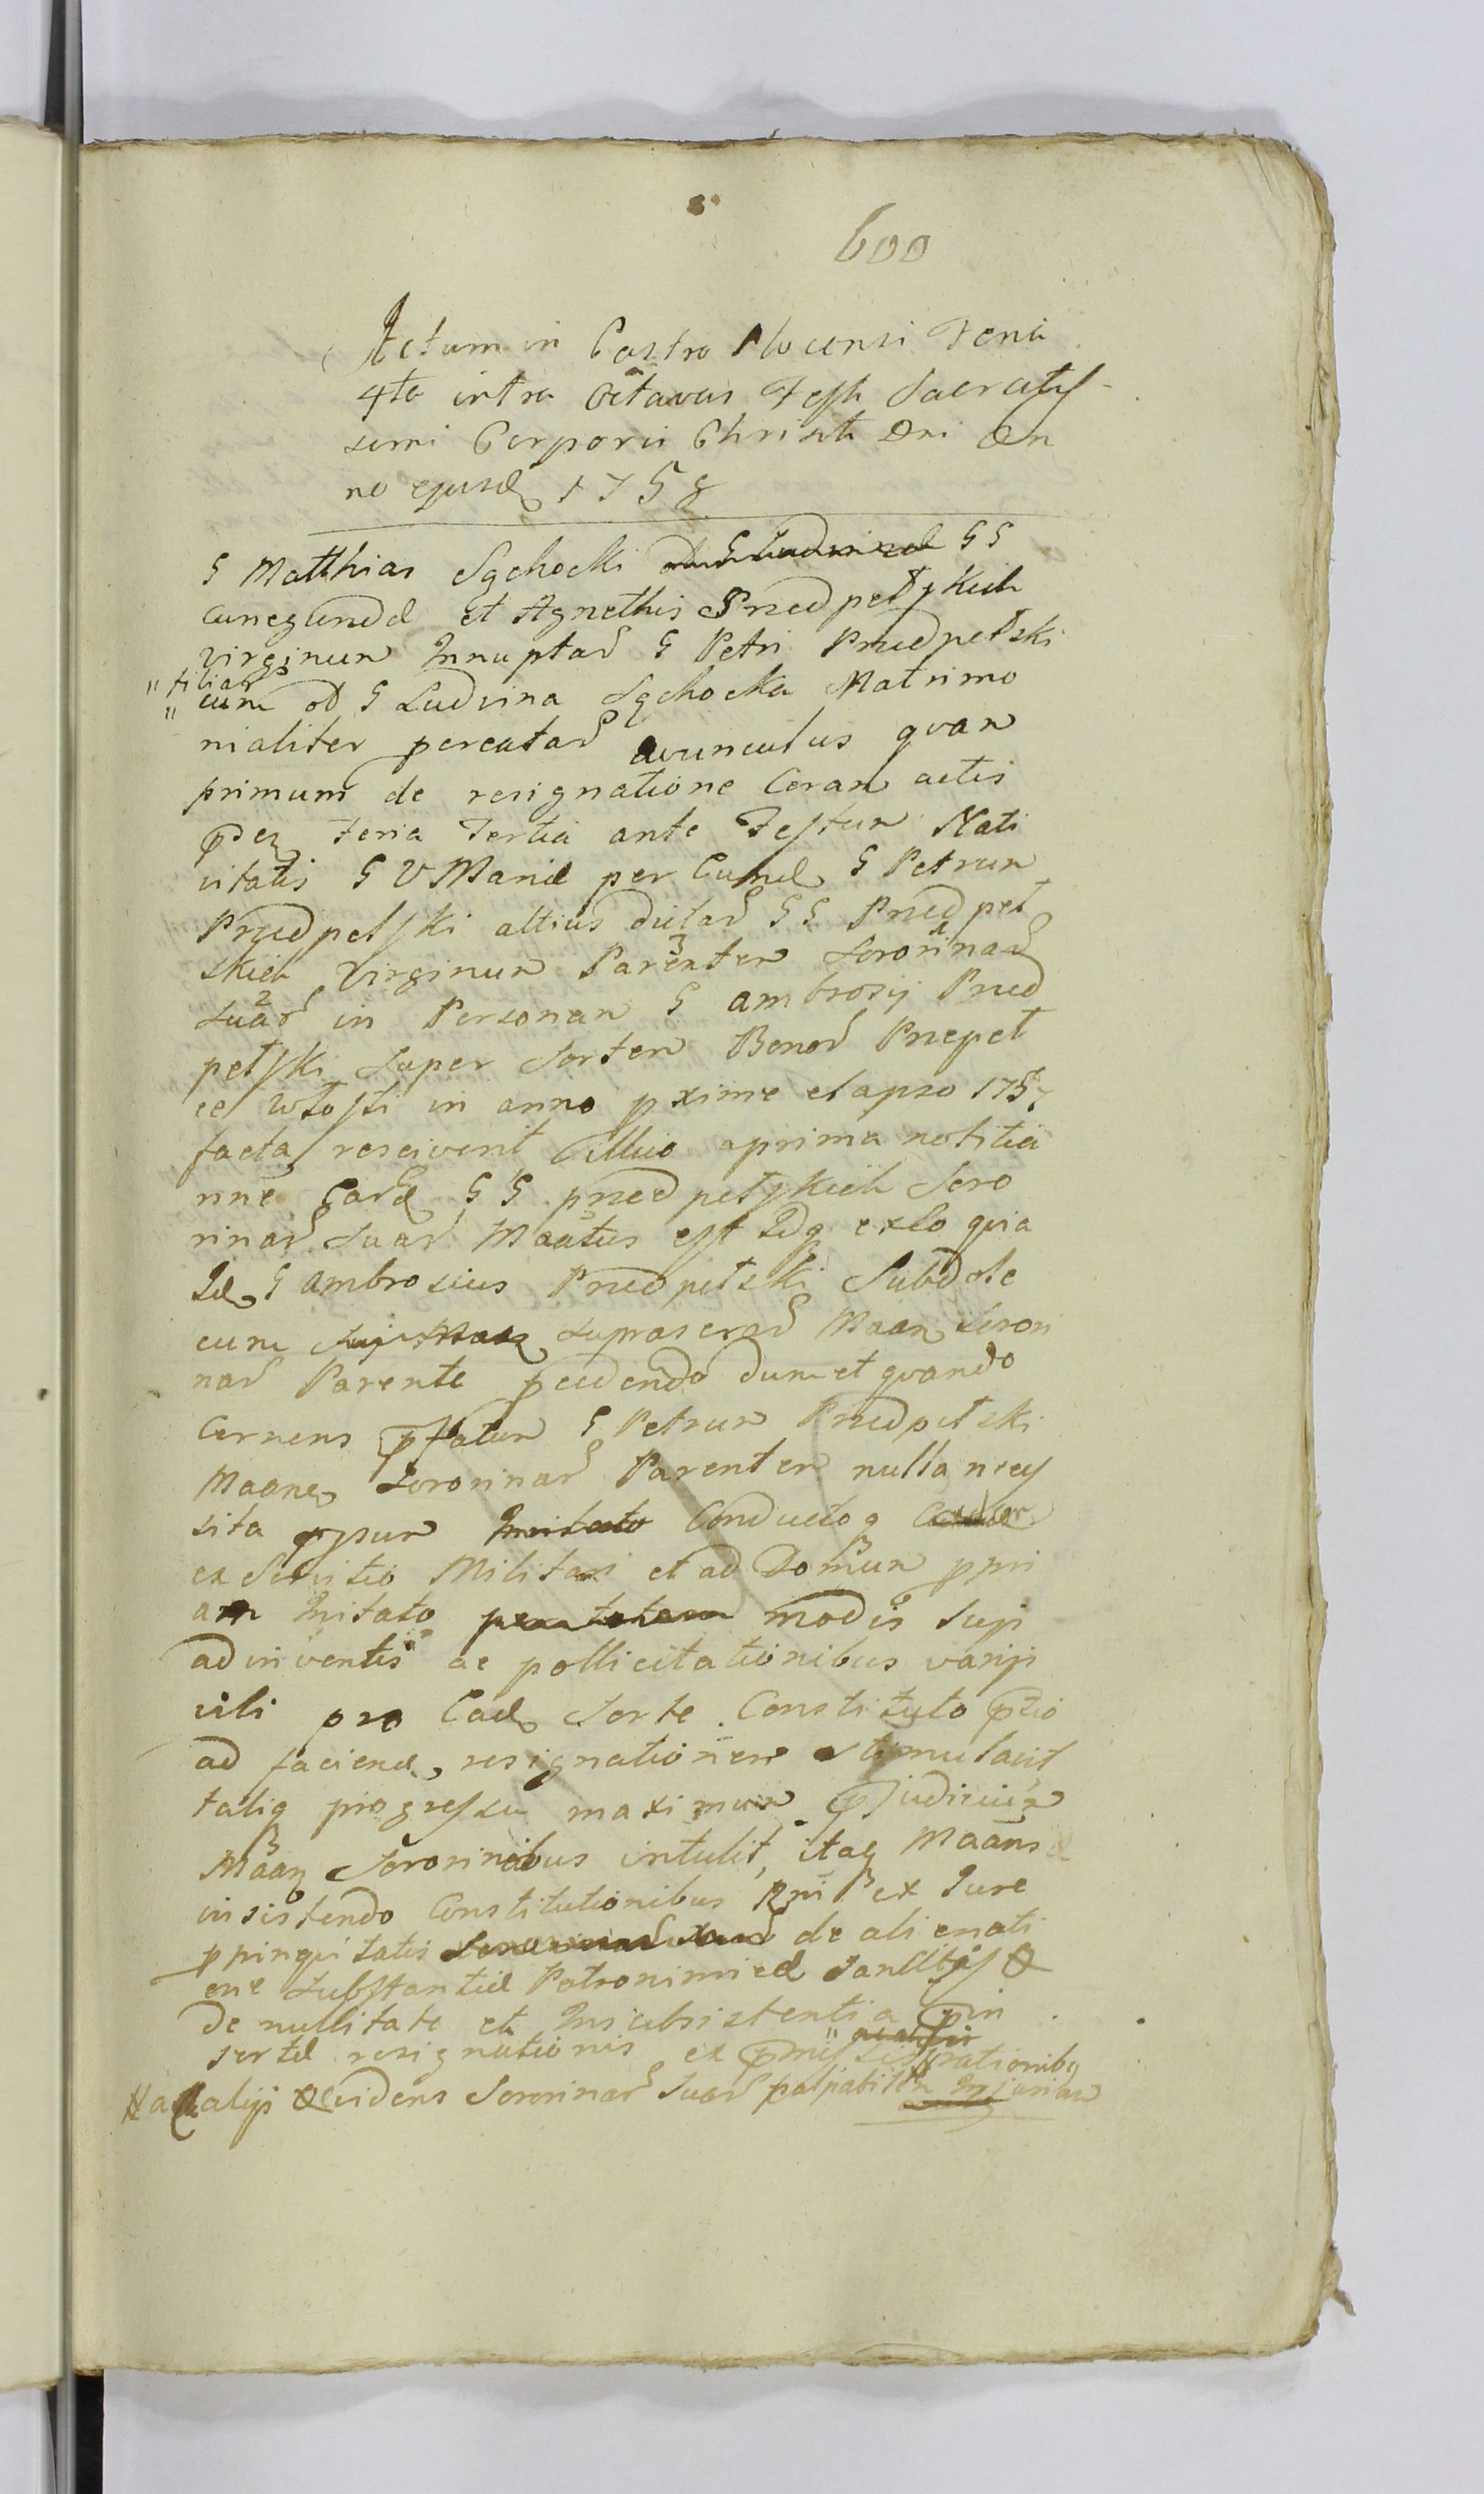 600
Actum in Castro Plocensi Feria
4ta intra Octavas Festi Sacratiss
simi Corporis Christi Dni An
no ejusd 1758
G Matthias Sęchocki GG
Cunegundae et Agnethis Przedpełskich
Virginum Innuptar G Petri Przedpełski
"filiar
"cum od G Ludvina Sęchocka Matrimo
nialiter percutar avunculus quam
primum de resignatione Coram actis
Feria Tertia ante Festum Nati
vitatis S V Mariae per Eund G Petrum
Przedpełski altius dictar GG Przedpeł
skich Virginum Parentem Sororinar
Suar in Personam G Ambrosij Przed
pełski Super Sortem Bonor Przepeł
ce Włosti in anno pxime elapso 1757
facta resciverit illico a prima notitia
nne Eard GG Przedpełskich Soro
rinar Suar Maatus est Idq ex eo quia
Id G Ambrosius Przedpełski Subdole
cum suprascrar Maan Sorori
nar Parente pcedendo dum et quando
Cernens pfatum G Petrum Przedpełski
Maane Sororinar Parentem nulla necs
sita pssum Invitato Conductoq
ex Servitio Militari et ad Domum ppri
am Invitato modis Supi
adinventis ac pollicitationibus varijs
vili pro Ead Sorte Constituto ptio
ad faciend resignationem stimulavit
taliq progressu maximum pjudicium
Maan Sororinibus intulit, itaq Maans
insistendo Constitutionibus Rni ex Jure
ppinquitatis de alienati
one Substantiae Patronimicae Sancitis &
de nullitate et Insubsistentia pin
sertae resignationis ex pmissis rationibq
ac alijs Evidens Sororinar Suar palpabilem Injuriam